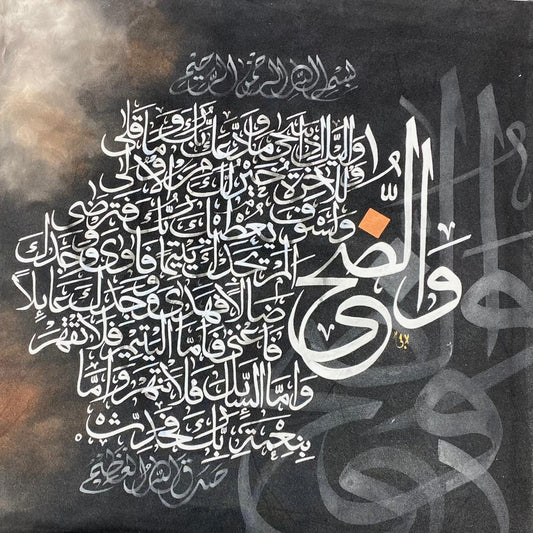 بسم الله الرحمن الرحيم
والضحى
واليل اذا سجى ما ودعك ربك وما قلى
وللاخرة خير لك من الاولى
ولسوف يعطيك ربك فترضى
الم يجدك يتيما فاوى ووجدك
ضالا فهدى ووجدك عايلا
فاغنى فاما اليتيم فلا تقهر
واما السايل فلا تنهر واما
بنعمة ربك فحدث
صدق الله العظيم